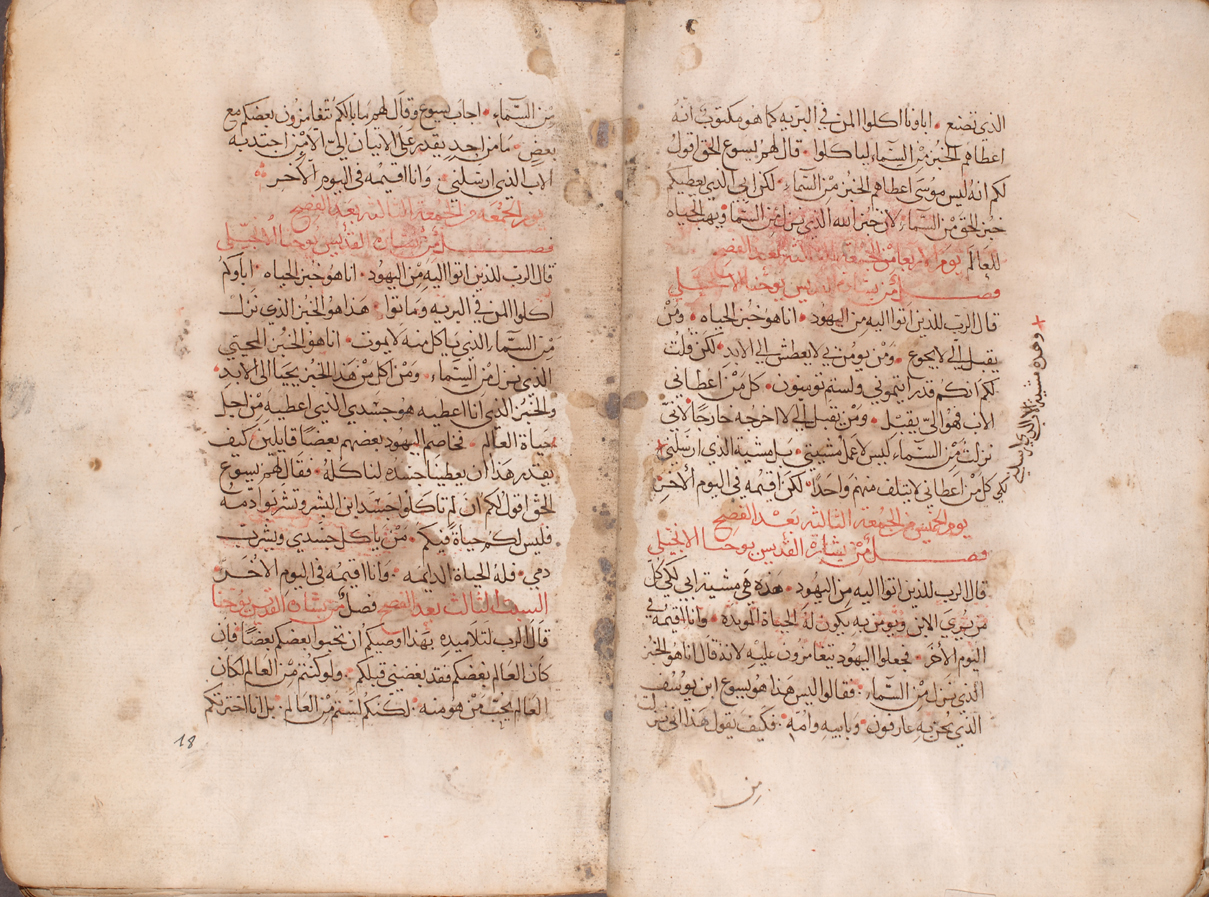 الذي تصنع . اباونا اكلوا المن في البريه كما هو مكتوب انه
اعطاهم الخبز من السماء لياكلوا . قال لهم يسوع الحق اقول
لكم انه ليس موسى اعطاهم الخبز من السماء . لكن ابي الذي يعطيكم
خبز الحق من السماء . لان خبز الله الذي نزل من السما ويهب الحياه
للعالم يوم الاربعا من الجمعة الثالثه بعد الفصح
فصل من بشارة القديس يوحنا الانجيلي
قال الرب للذين اتوا اليه من اليهود . انا هو خبز الحياه . ومن
يقبل الي لا يجوع . ومن يومن بي لا يعطش الى الابد . لكن قلت
لكم انكم قد رايتموني ولستم تومنون . كل من اعطاني
الاب فهو الي يقبل . ومن يقبل الي لا اخرجه خارجا لاني
نزلت من السماء ليس لاعمل مشيتي . بل مشية الذي ارسلني
وهذه مشية الاب الذي ارسلني
لكي كل من اعطاني لا يتلف منهم واحدا . لكن اقيمه في اليوم الاخر
يوم الخميس من الجمعة الثالثه بعد الفصح
فصل من بشارة القديس يوحنا الانجيلي
قال الرب للذين اتوا اليه من اليهود . هذه هي مشية ابي لكي كل
من يري الابن ويومن به يكون له الحياة الموبده . وانا اقيمه في
اليوم الاخر . فجعلوا اليهود يتغامزون عليه لانه قال انا هو الخبز
الذي نزل من السماء . فقالوا اليس هذا هو يسوع ابن يوسف
الذي نحن به عارفون . وبابيه وامه . فكيف يقول هذا اني نزلت
من
من السماء . اجاب يسوع وقال لهم ما بالكم تتغامزون بعضكم مع
بعض . ما من احد يقدر على الاتيان الي الا من اجتذبه
الاب الذي ارسلني . وانا اقيمه في اليوم الاخر
يوم الجمعه من الجمعة الثالثه بعد الفصح
فصل من بشارة القديس يوحنا الانجيلي
قال الرب للذين اتوا اليه من اليهود . انا هو خبز الحياه . اباوكم
اكلوا المن في البريه وماتوا . هذا هو الخبز الذي نزل
من السماء الذي ياكل منه لا يموت . انا هو الخبز المحيي
الذي نزل من السماء . ومن اكل من هذا الخبز يحيا الى الابد .
والخبز الذي انا اعطيه هو جسدي الذي اعطيه من اجل
حياة العالم . فخاصم اليهود بعضهم بعضا قايلين كيف
يقدر هذا ان يعطينا جسده لناكله . فقال لهم يسوع
الحق اقول لكم ان لم تاكلوا جسد ابن البشر وتشربوا دمه
فليس لكم حياة فيكم . من ياكل جسدي ويشرب
دمي . فله الحياة الدايمه . وانا اقيمه في اليوم الاخر .
السبت الثالث بعد الفصح فصل من بشارة القديس يوحنا
قال الرب لتلاميذه بهذا اوصيكم ان تحبوا بعضكم بعضا فان
كان العالم يبغضكم فقد بغضني قبلكم . ولو كنتم من العالم لكان
العالم يحب من هو منه . لكنكم لستم من العالم . بل انا اخترتكم
18